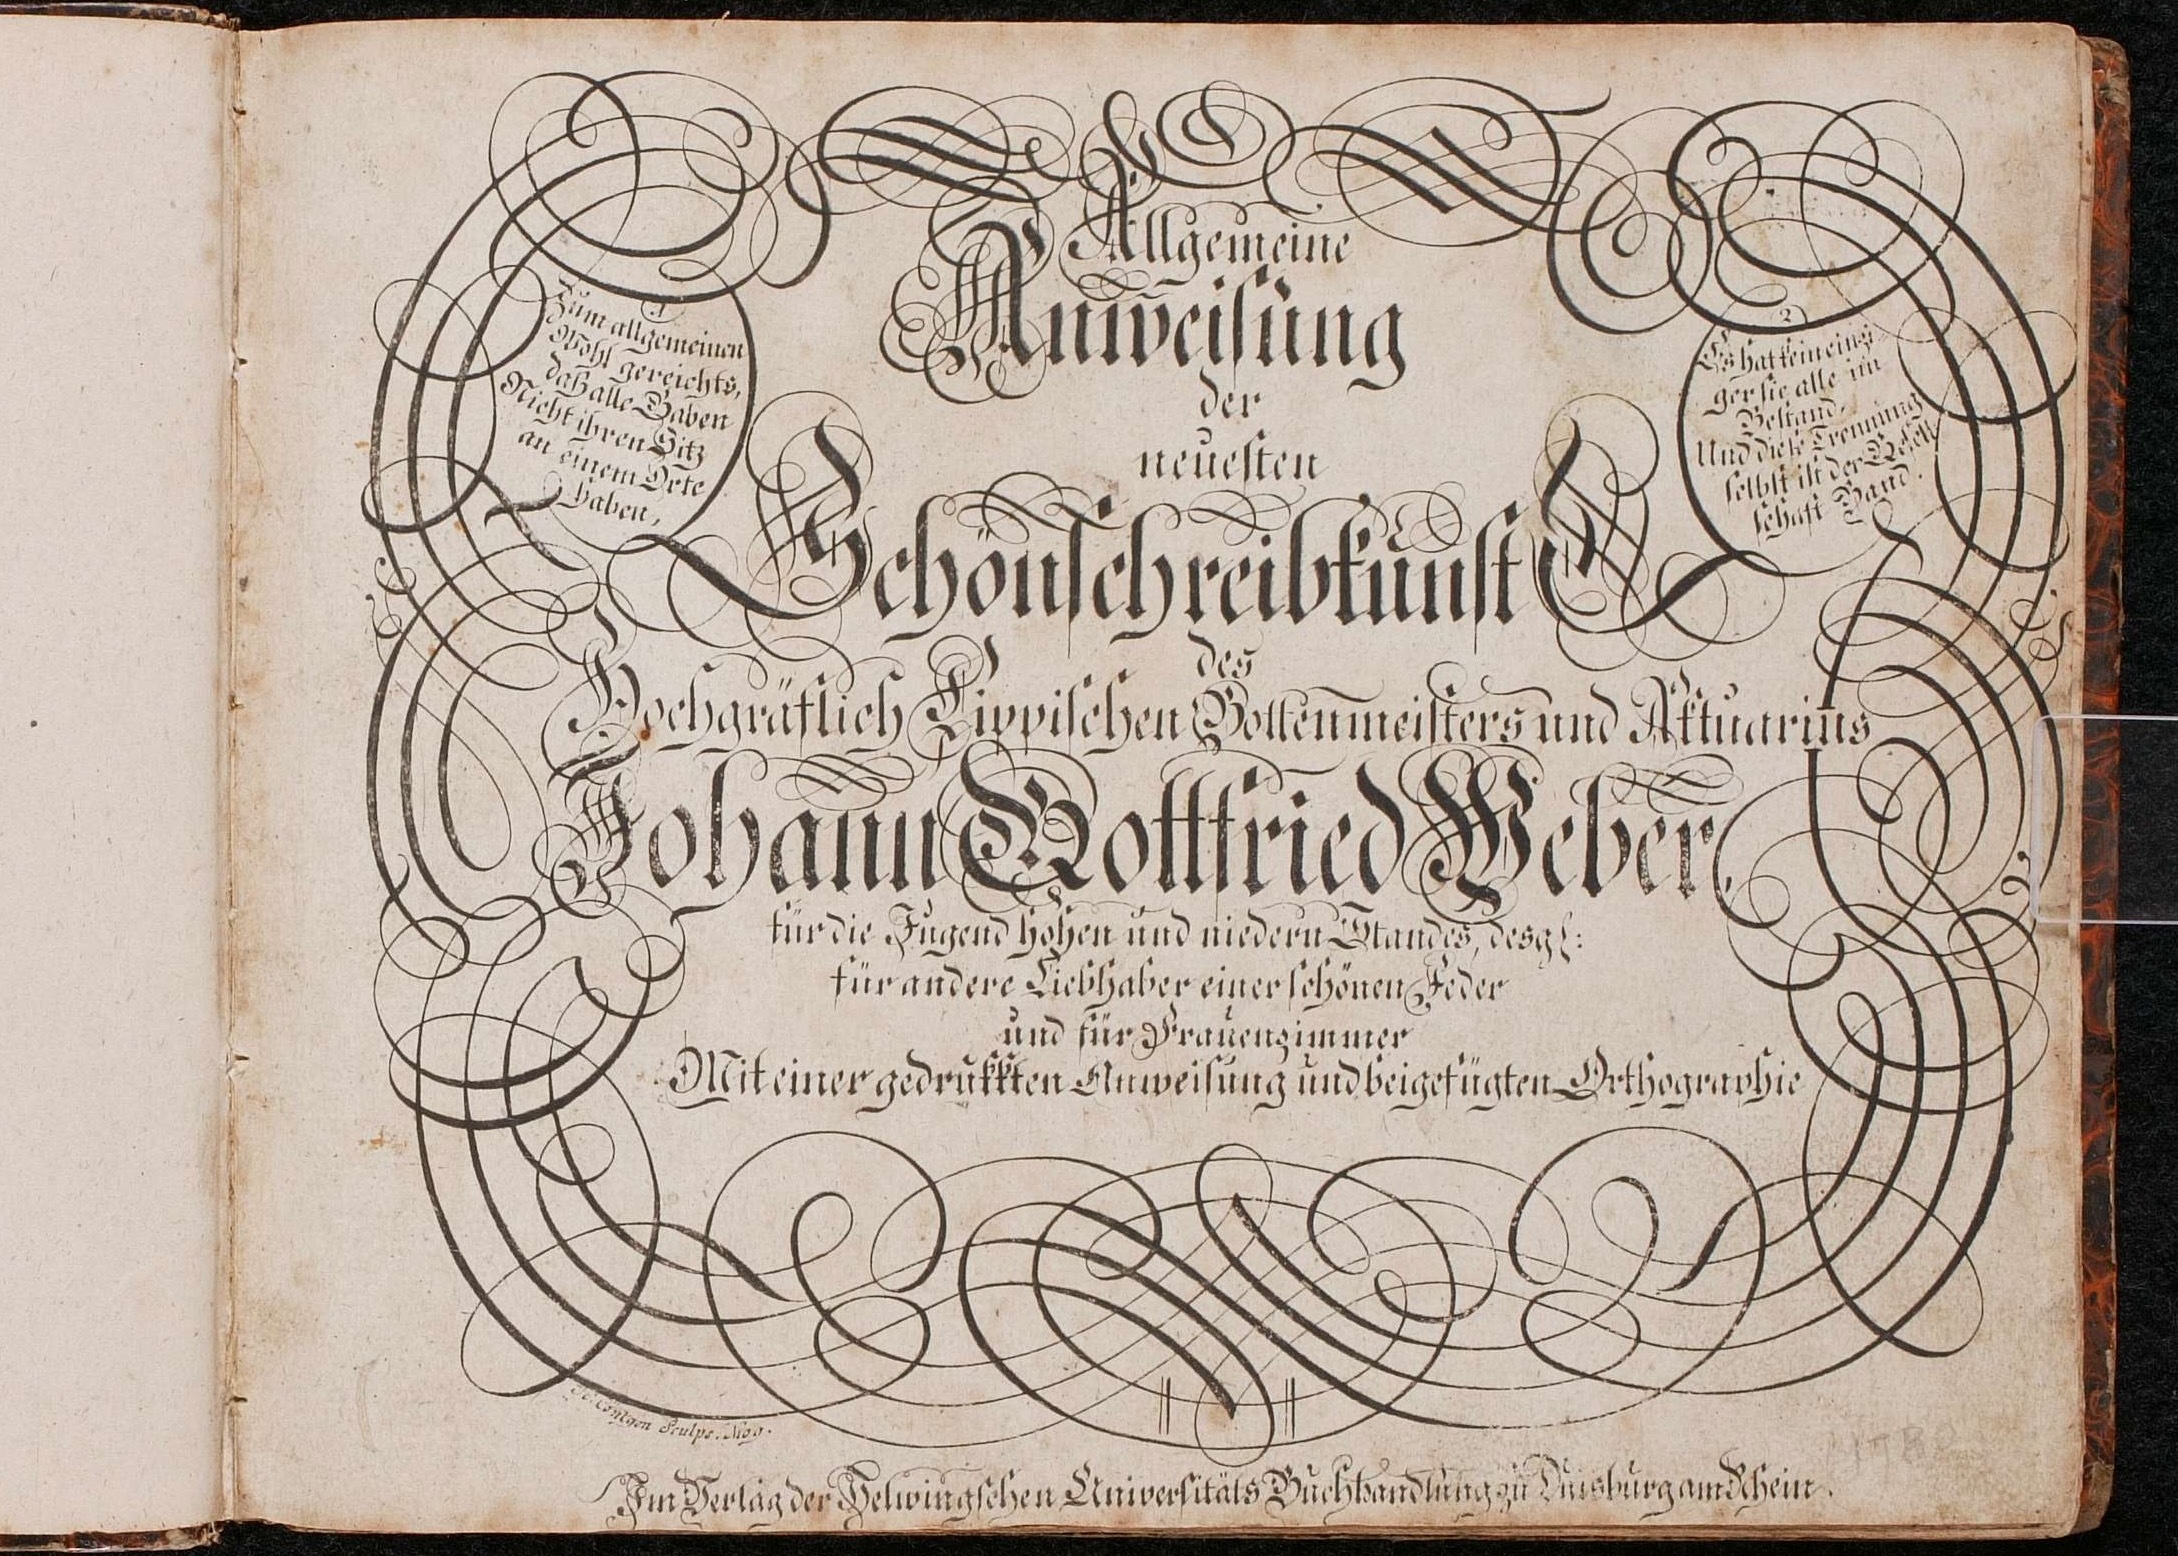 1
Zum allgemeinen
Wohl gereichts,
daß alle Gaben
Nicht ihren Sitz
an einem Orte
haben,
2
Es hat kein einzi-
ger sie alle im
Bestand,
Und diese Trennung
selbst ist der Gesell-
schaft Band.
Allgemeine
Anweisung
der
neuesten
Schönschreibkunst
des
Hochgräflich Lippischen Bottenmeisters und Aktuarius
Johann Gottfried Weber,
für die Jugend hohen und niedern Standes, desgl:
für andere Liebhaber einer schönen Feder
und für Frauenzimmer
Mit einer gedrukkten Anweisung und beigefügten Orthographie
Sculps. Mog.
Im Verlag der Helwingschen Universitäts Buchhandlung zu Duisburg am Rhein.
1780